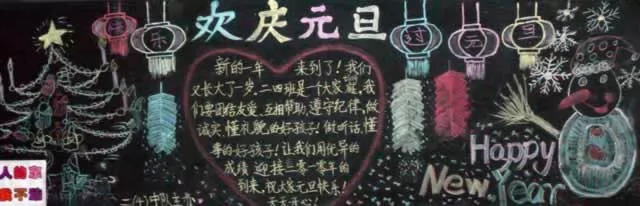 快乐
欢庆元旦
过元旦
新的一年 来到了！我们
又长大了一岁,二四班是一个大家庭,我
们要团结友爱,互相帮助,遵守纪律,做
诚实懂礼貌的好孩子！做听话,懂
事的好孩子！让我们用优异的
成绩 迎接二零一零年的
到来,祝大家元旦快乐！
天天开心！
二(4)中队
Happy
New Year